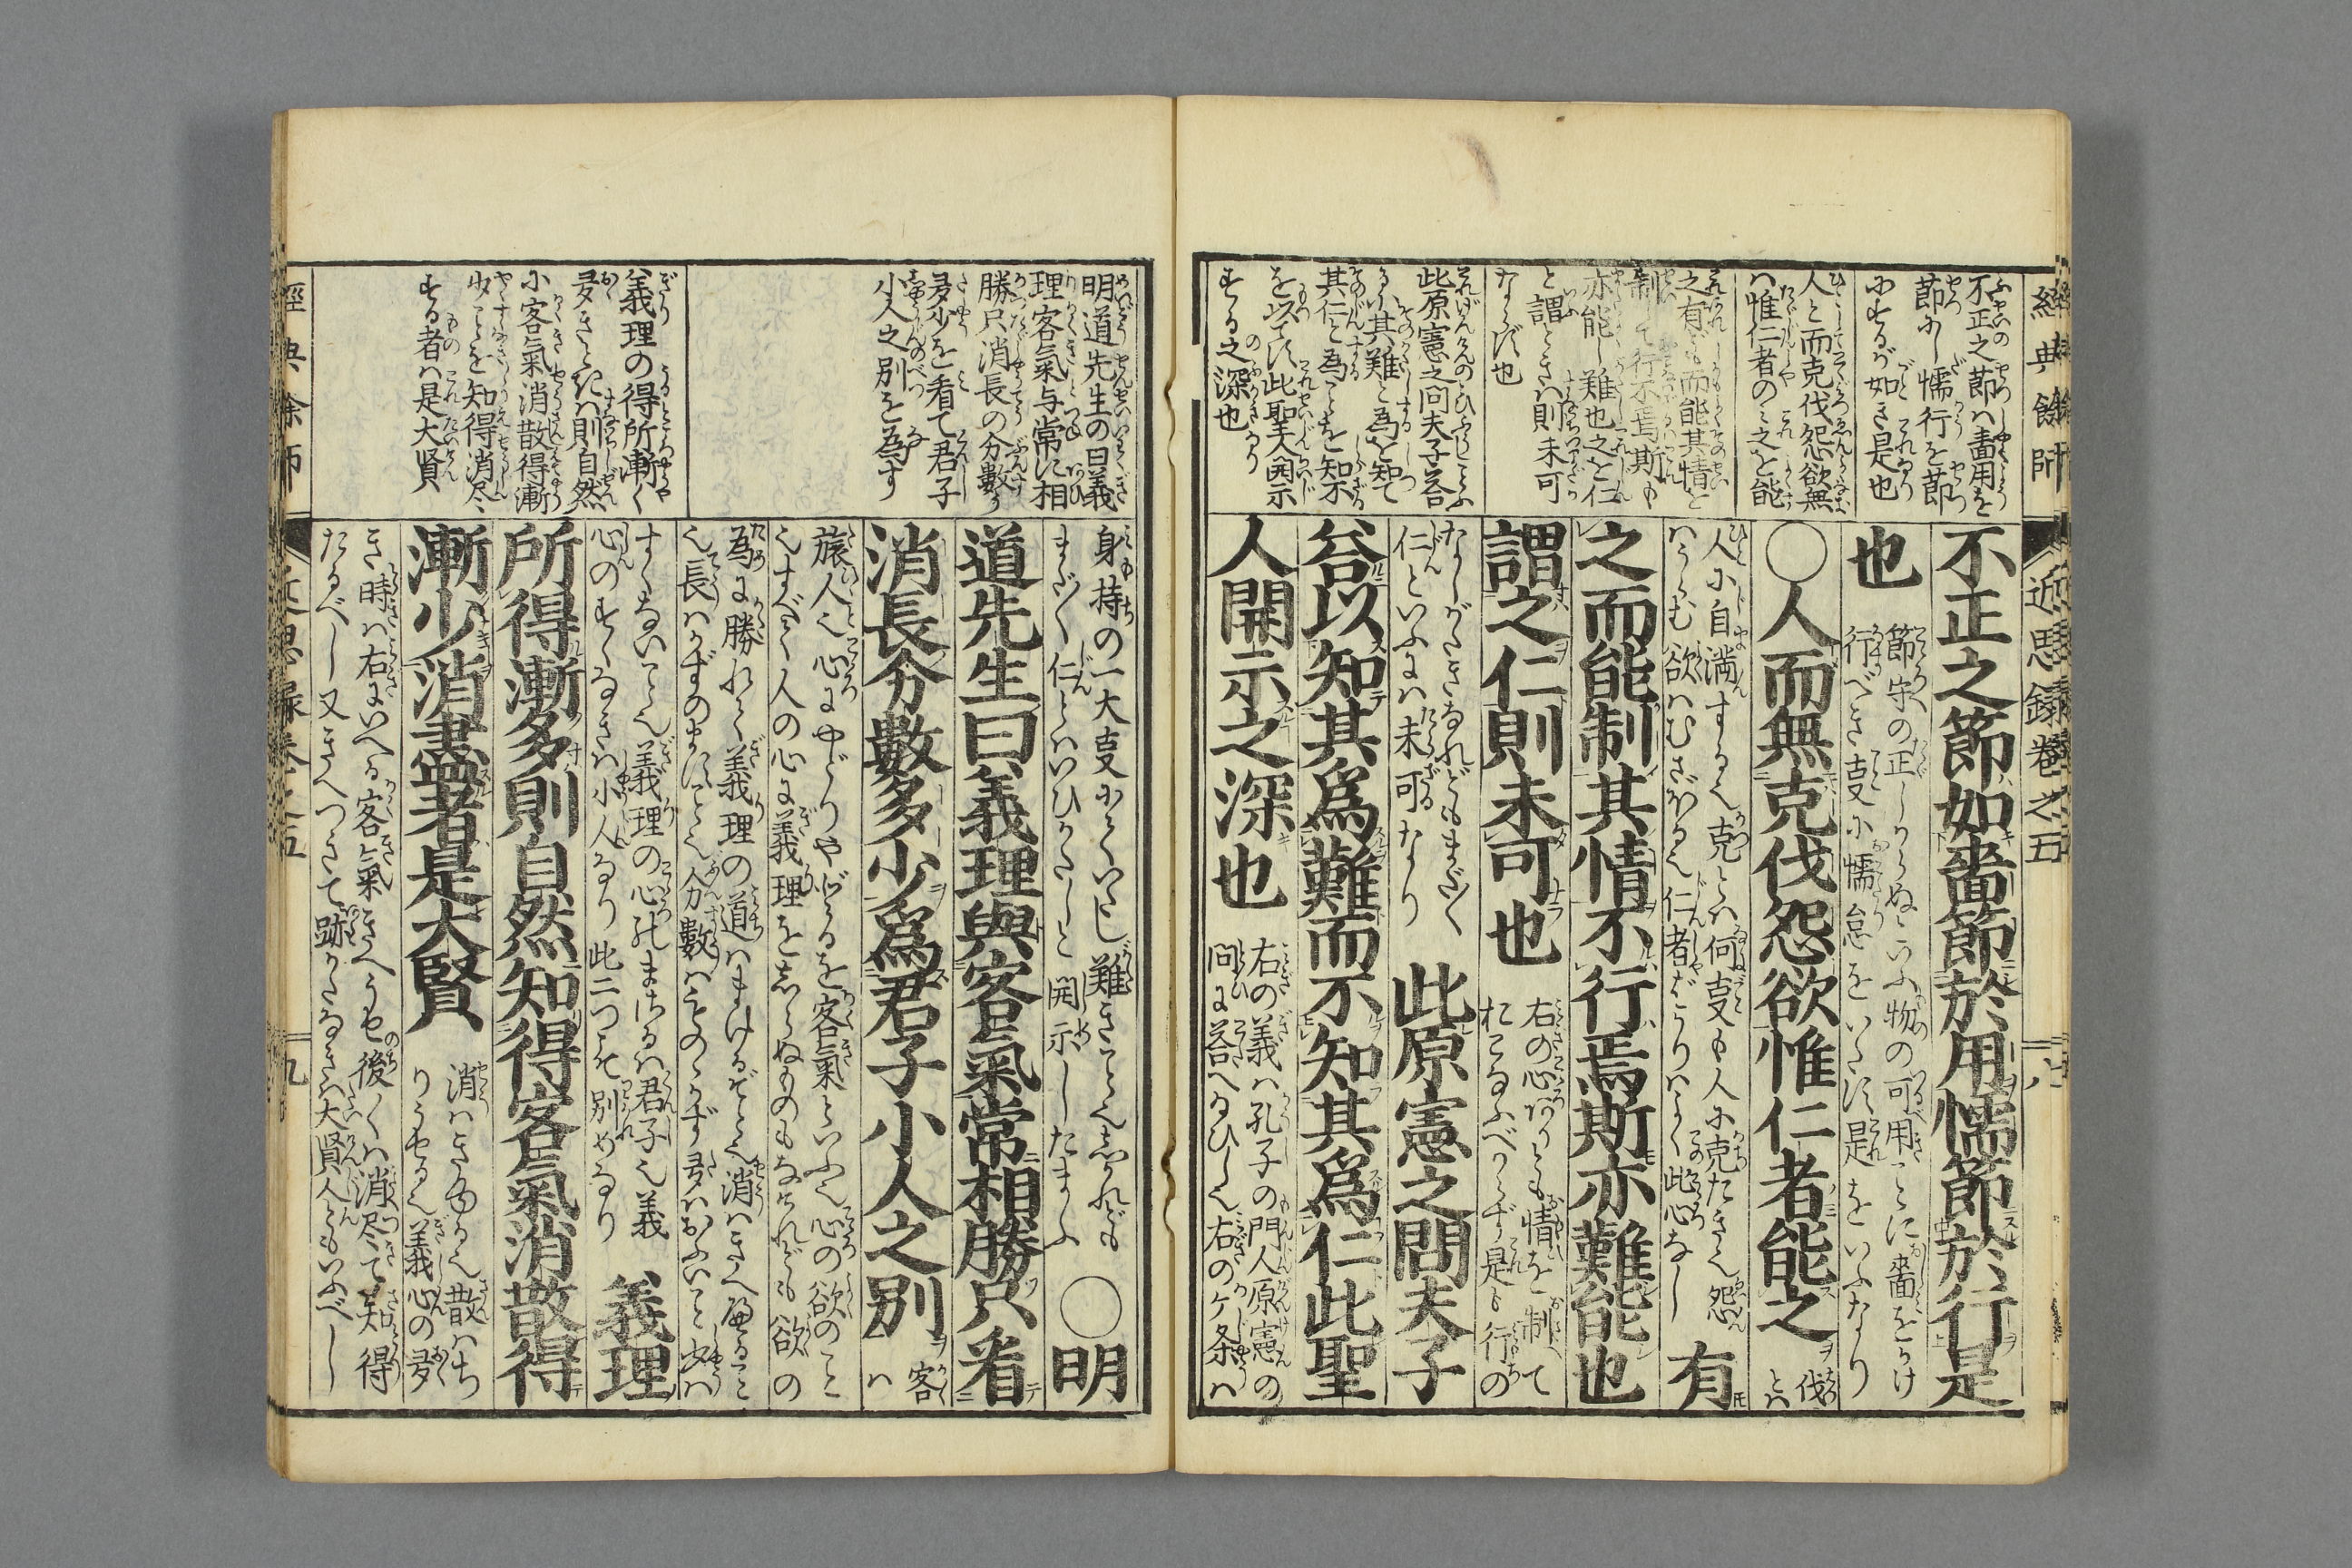 經典餘師
近思録巻之五
八
不正之節ハ嗇用を
節し懦行を節
にするが如き是也
人として而克伐怨欲無
ハ惟仁者のミ之を能
之有ども而能其情を
制して行不焉斯も
亦能し難也之を仁
と謂ときハ則未可
ならず也
此原憲之問夫子答
るに其難と為を知て
其仁と為ことを知不
を以てす此聖人開示
する之深也
不正之節如嗇節於用懦節於行是
也
節守の正しからぬといふ物の可用ことに嗇をかけ
行べき事に懦怠をいたす是をいふなり
○人而無克伐怨欲惟仁者能之
伐
とハ
人に自満するく克とハ何事も人に克たきく怨
ハうらむ欲ハむさぼるく仁者ばかりハよく此心なし
有
之而能制其情不行焉斯亦難能也
謂之仁則未可也
右の心ハありとも情を制て
おこなふべからず是も行の
なしがたきなれどもまだ〱
仁といふにハ未可なり
此原憲之問夫子
答以知其爲難而不知其爲仁此聖
人開示之深也
右の義ハ孔子の門人原憲の
問に答へ給ひしく右のケ条ハ
明道先生の曰義
理客氣与常に相
勝只消長の分數
多少を看て君子
小人之別を為す
義理の得所漸く
多きときハ則自然
に客氣消散得漸
少ことを知得消尽
する者ハ是大賢
身持の一大事にていたし難きことく然れども
まだ〱仁とハいひがたしと開示したまふ
○明
道先生曰義理與客氣常相勝只看
消長分數多少爲君子小人之別
客
ハ
旅人く心にやどりやどるを客氣といふく心の欲のこと
くすべて人の心に義理をしらぬものもなけれども欲の
為に勝れて義理の道ハまけるぞとく消ハきへ滅ること
く長ハかずのますことく分數ハものゝかず多ハおふいこと少ハ
すくないことく義理の心がまさるハ君子く義
心のすくなきハ小人なり此二つを別めなり
義理
所得漸多則自然知得客氣消散得
漸少消盡者是大賢
消ハきゆるく散ハち
りうせるく義心の多
き時ハ右にいへる客氣きへうせ後くハ消尽て知得
たるべし又きへつきて跡かたなきハ大賢人ともいふべし
經典餘師
近思録巻之五
九